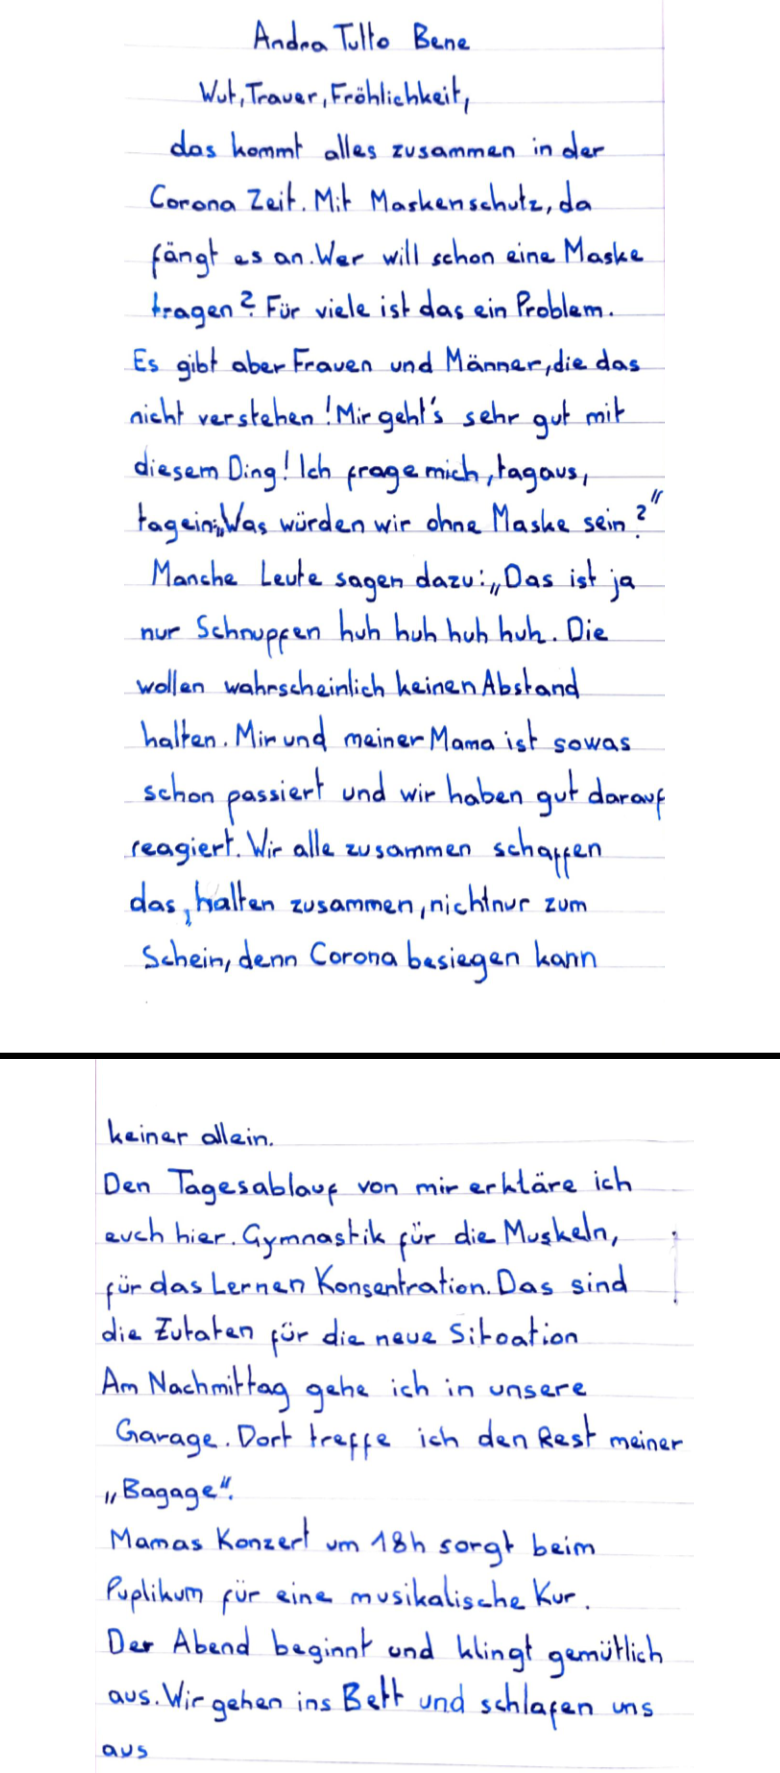 Andra Tutto Bene
Wut, Trauer, Fröhlichkeit,
das kommt alles zusammen in der
Corona Zeit. Mit Maskenschutz, da
fängt es an. Wer will schon eine Maske
tragen? Für viele ist das ein Problem.
Es gibt aber Frauen und Männer, die das
nicht verstehen! Mir geht's sehr gut mit
diesem Ding! Ich frage mich, tagaus,
tagein: „Was würden wir ohne Maske sein?"
Manche Leute sagen dazu: „Das ist ja
nur Schnupfen huh huh huh huh. Die
wollen wahrscheinlich keinen Abstand
halten. Mir und meiner Mama ist sowas
schon passiert und wir haben gut darauf
reagiert. Wir alle zusammen schaffen
das, halten zusammen, nicht nur zum
Schein, denn Corona besiegen kann
keiner allein.
Den Tagesablauf von mir erkläre ich
euch hier. Gymnastik für die Muskeln,
für das Lernen Konsentration. Das sind
die Zutaten für die neue Sitoation
Am Nachmittag gehe ich in unsere
Garage. Dort treffe ich den Rest meiner
„Bagage".
Mamas Konzert um 18h sorgt beim
Puplikum für eine musikalische Kur.
Der Abend beginnt und klingt gemütlich
aus. Wir gehen ins Bett und schlafen uns
aus